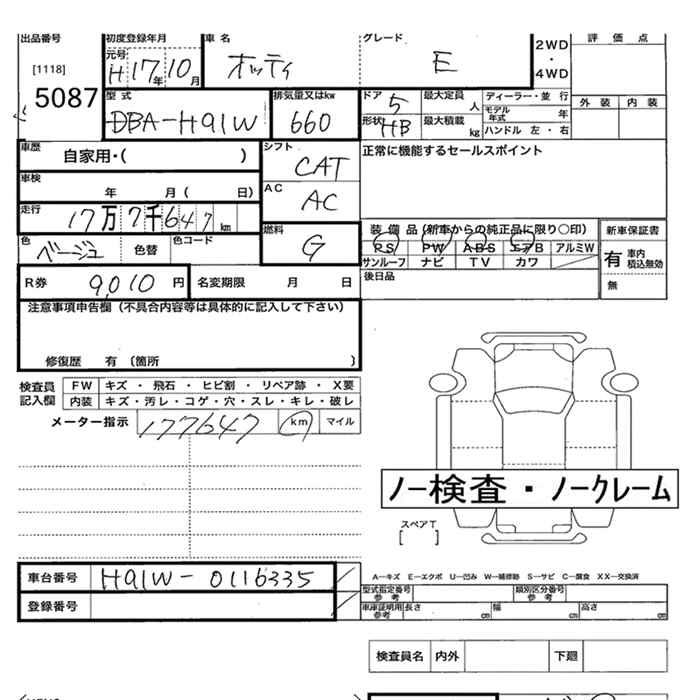 出品番号 初度登録年月 車名 グレード 2WD・4WD 評価点
[1118] 元号 H17年10月 オッティ E
5087 型式 DBA-H91W 排気量又はkw 660 ドア 5 最大定員 人 ディーラー・並行 外装 内装
形状 HB 最大積載 kg モデル年式 年
ハンドル 左・右
車歴 自家用・( ) シフト CAT 正常に機能するセールスポイント
車検 年 月( 日) AC AC
走行 17万7千647km 燃料 G 装備品(新車からの純正品に限り○印) 新車保証書
色 ベージュ 色替 色コード PS PW ABS エアB アルミW 有 車内積込無効
サンルーフ ナビ TV カワ
R券 9,010円 名変期限 月 日 後日品 無
注意事項申告欄(不具合内容等は具体的に記入して下さい)
修復歴 有 〔箇所 〕
検査員記入欄 FW キズ・飛石・ヒビ割・リペア跡・X要
内装 キズ・汚レ・コゲ・穴・スレ・キレ・破レ
メーター指示 177647 km マイル
ノー検査・ノークレーム
スペアT
[ ]
車台番号 H91W-0116335 A―キズ E―エクボ U―凹み W―補修跡 S―サビ C―腐食 XX―交換済
登録番号 型式指定番号 参考 類別区分番号 参考
車庫証明用 参考 長さ cm 幅 cm 高さ cm
検査員名 内外 下廻